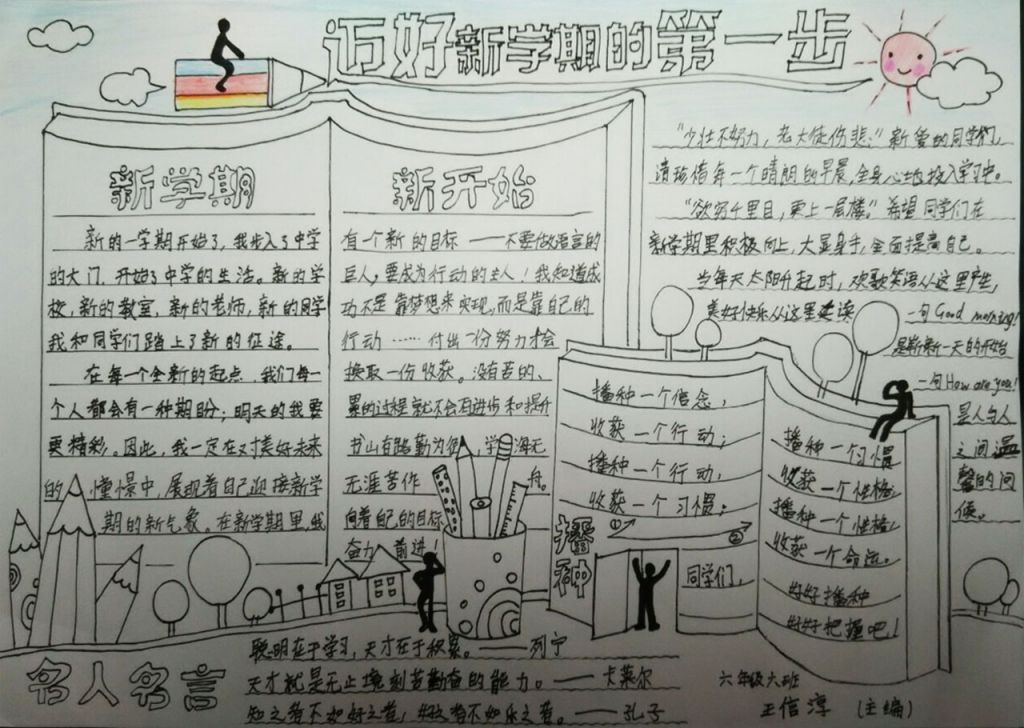 迈好新学期的第一步
新学期
新的一学期开始了,我步入了中学
的大门,开始了中学的生活。新的学
校,新的教室,新的老师,新的同学
我和同学们踏上了新的征途。
在每一个全新的起点,我们每一
个人都会有一种期盼;明天的我要
更精彩。因此,我一定在对美好未来
的憧憬中,展现着自己迎接新学
期的新气象。在新学期里我
新开始
有一个新的目标——不要做语言的
巨人,要成为行动的主人!我知道成
功不是靠梦想来实现,而是靠自己的
行动……付出一份努力才会
换取一份收获。没有苦的、
累的过程就不会有进步和提升
书山有路勤为径,学海无
无涯苦作舟。
向着自己的目标
奋力前进!
“少壮不努力,老大徒伤悲;”新爱的同学们,
请珍惜每一个晴朗的早晨,全身心地投入学习中。
“欲穷千里目,更上一层楼。”希望同学们在
新学期里积极向上,大显身手,全面提高自己。
当每天太阳升起时,欢歌笑语从这里产生,
美好快乐从这里
一句Good morning!
是崭新一天的开始
一句How are you!
是人与人
之间温
馨的问
候。
播种一个信念,
收获一个行动;
播种一个行动,
收获一个习惯;
播种
①
②
同学们,
播种一个习惯
收获一个性格;
播种一个性格,
收获一个命运。
好好播种
好好把握吧!
名人名言
聪明在于学习,天才在于积累。——列宁
天才就是无止境刻苦勤奋的能力。——卡莱尔
知之者不如好之者,好之者不如乐之者。——孔子
六年级六班
王信淳(主编)